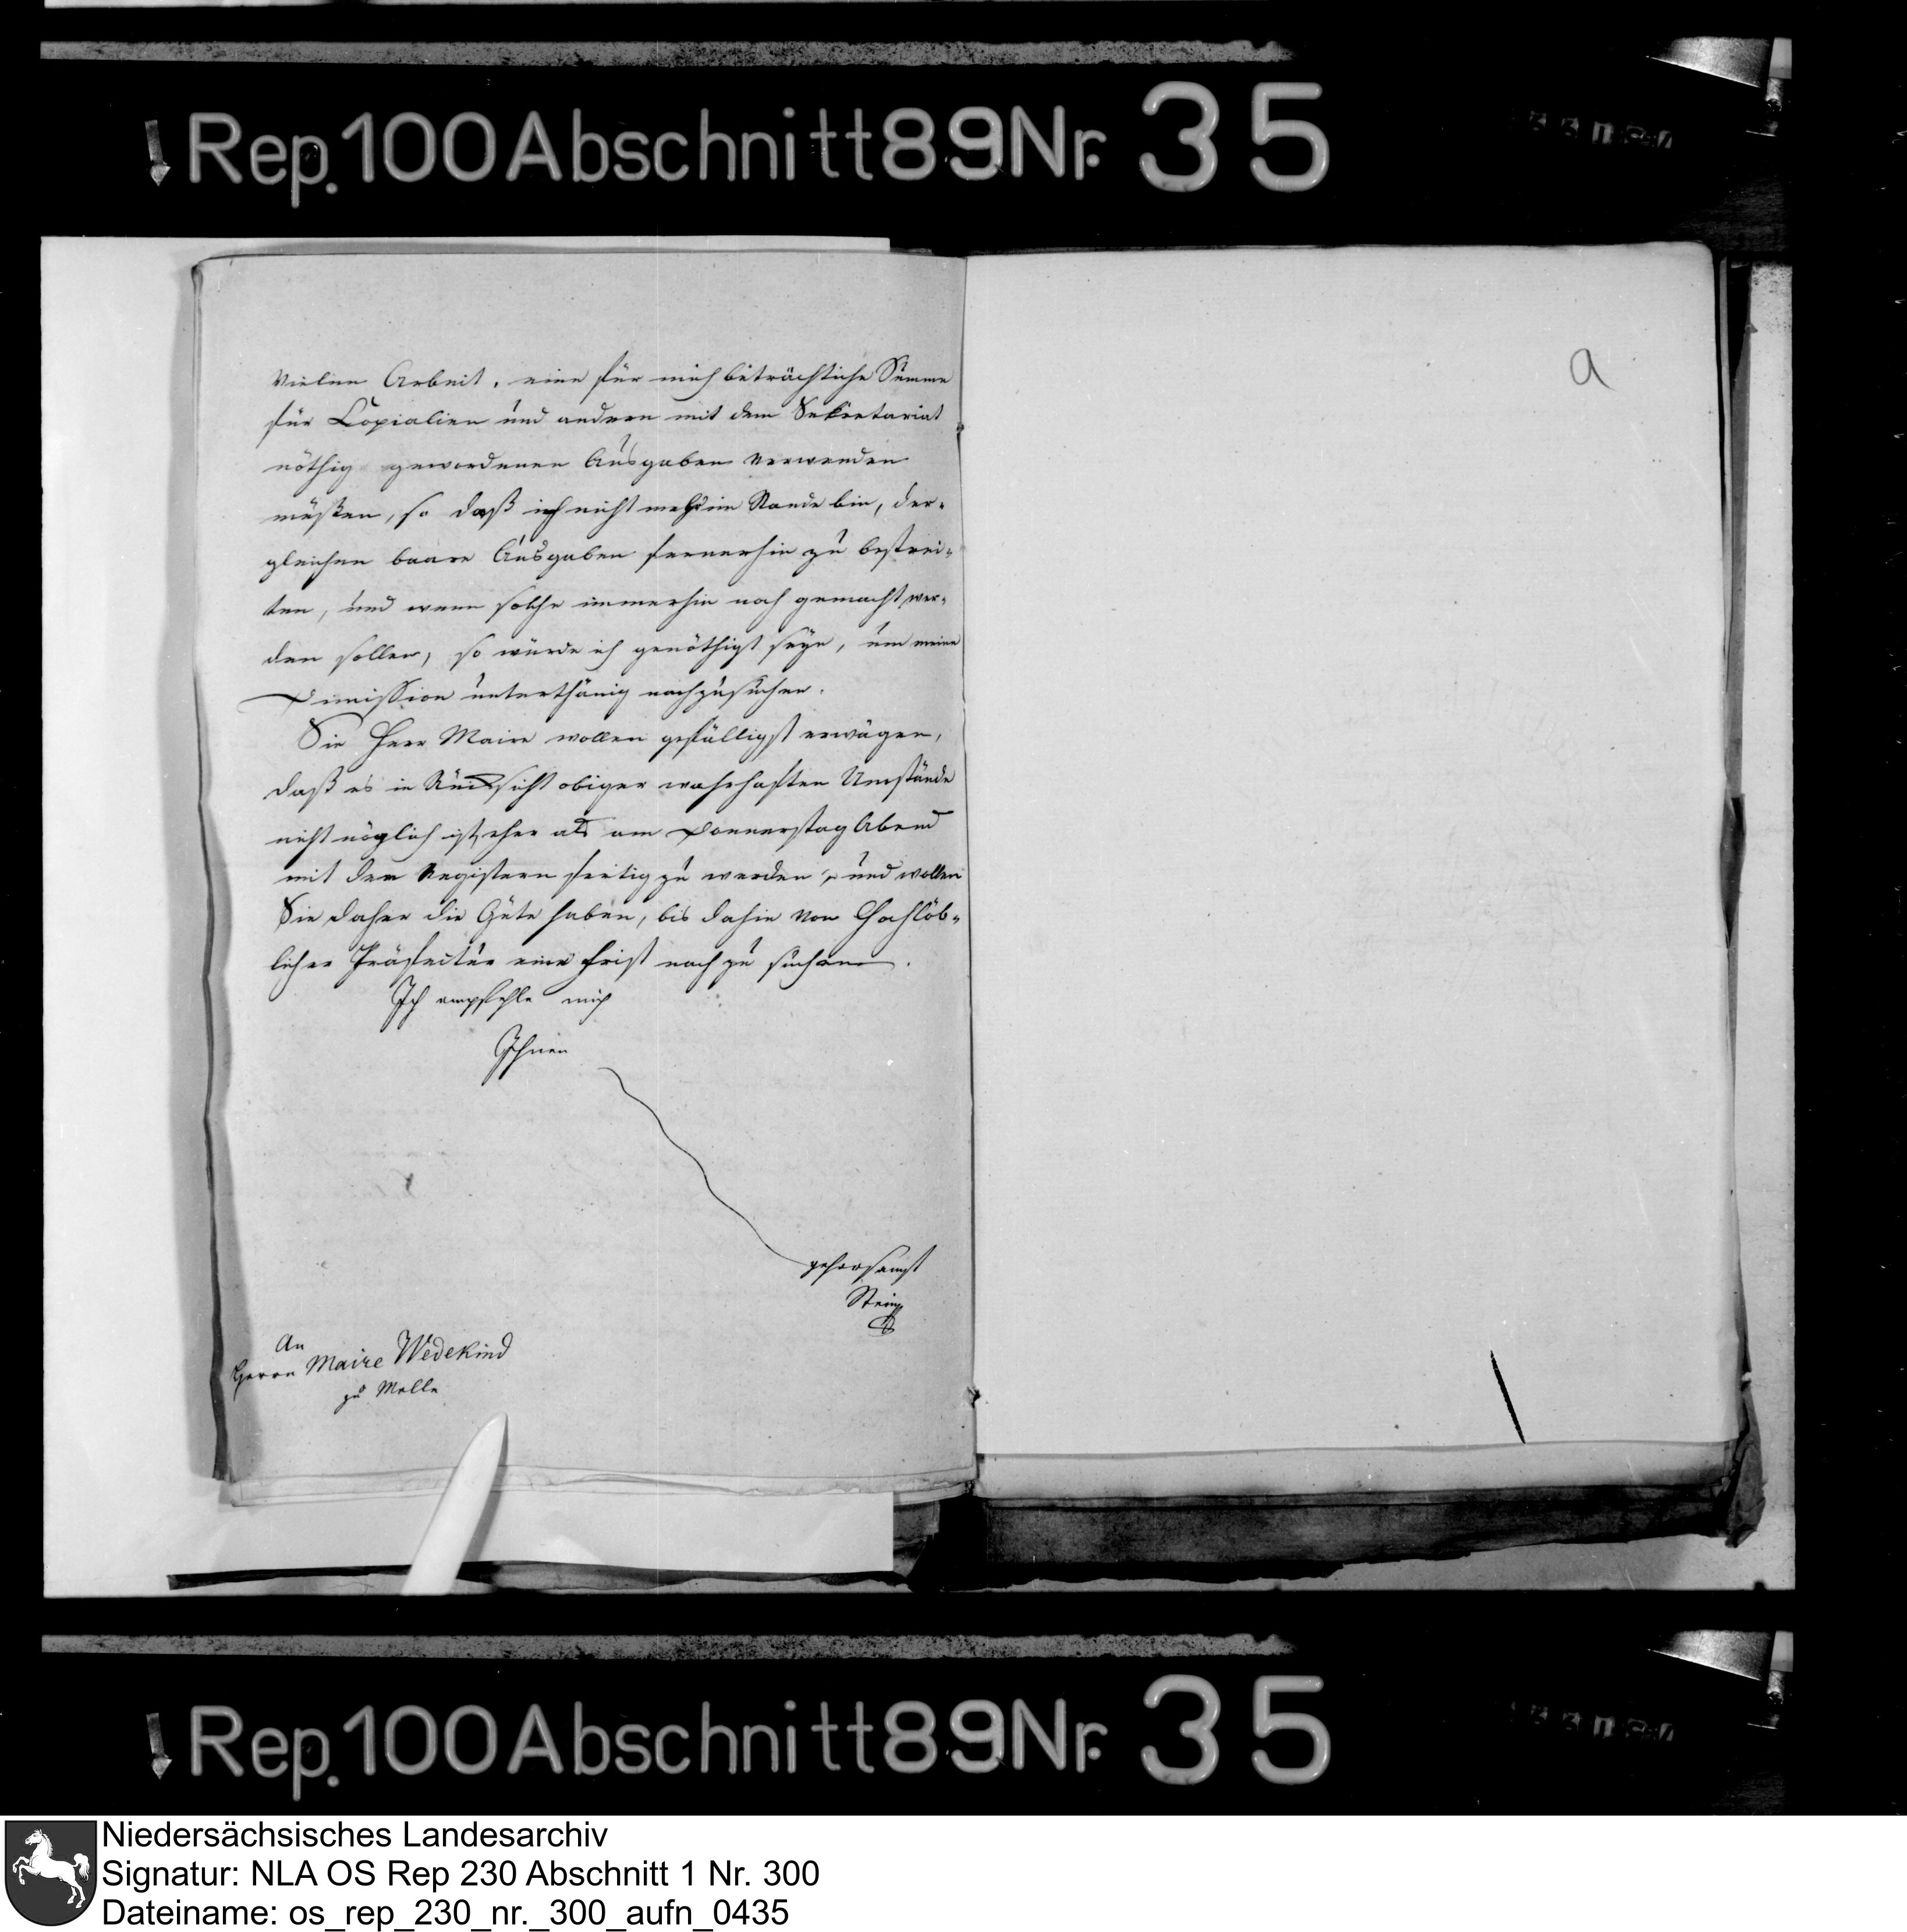 Rep. 100 Abschnitt 89 Nr. 35
a
vielen Arbeit, eine für mich beträchtliche Summe
für Copialien und andern mit dem Sekretariat
nöthig gewordenen Ausgaben verwenden
müßen, so daß ich nicht mehr im Stande bin, der-
gleichen baare Ausgaben fernerhin zu bestrei-
ten, und wenn solche immerhin noch gemacht wer-
den sollen, so würde ich genöthigt seyn, um meine
Dimission unterthänig nachzusuchen.
Sie Herr Maire wollen gefälligst erwägen,
daß es in Rücksicht obiger wahrhaften Umstände
nicht möglich ist, eher als am Donnerstag Abend
mit den Registern fertig zu werden, und wollen
Sie daher die Güte haben, bis dahin von Hochlöb-
licher Präfectur eine Frist nach zu suchen.
Ich empfehle mich
Ihnen
gehorsamst
Stein
An
Herrn Maire Wedekind
zu Melle
Rep. 100 Abschnitt 89 Nr. 35
Niedersächsisches Landesarchiv
Signatur: NLA OS Rep 230 Abschnitt 1 Nr. 300
Dateiname: os_rep_230_nr._300_aufn_0435